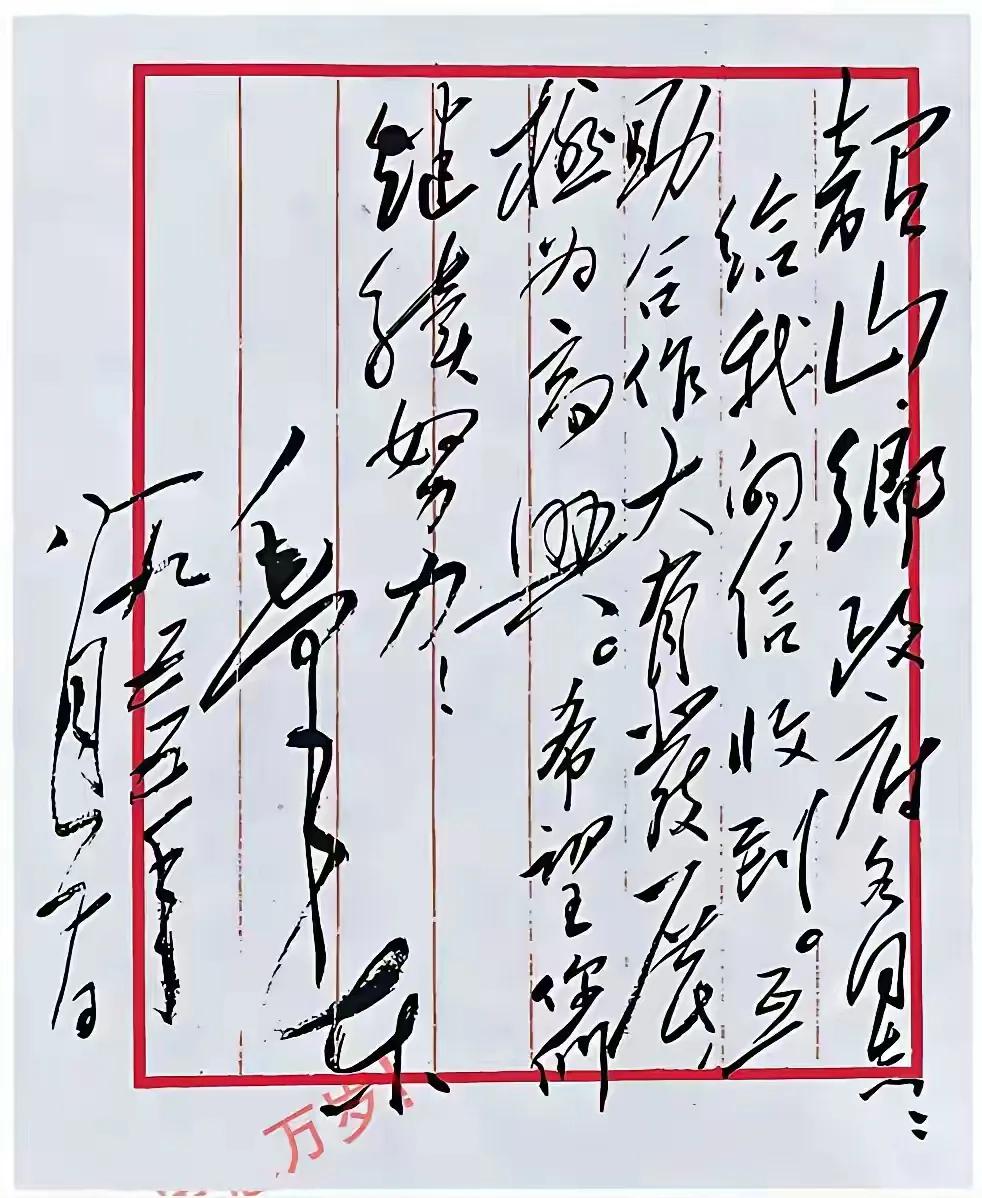 韶山鄉政府各同志：
给我的信收到。互
助合作大有發展，
極为高興。希望你們
继續努力！
毛泽东
一九五五年
八月二十日
万岁！